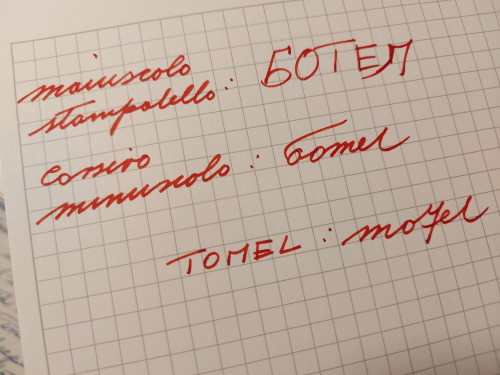 maiuscolo
stampatello: БОТЕЛ
corsivo
minuscolo: ботел
TOMEL :